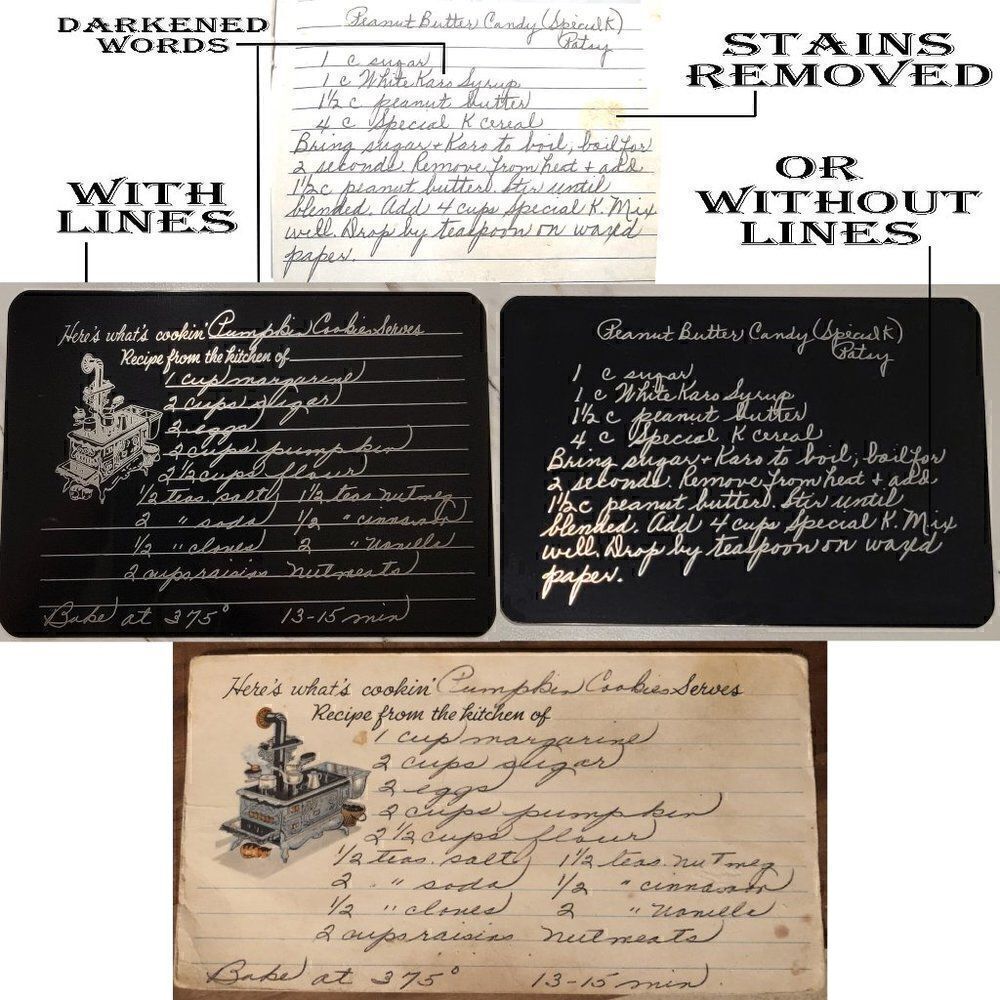 DARKENED
WORDS
STAINS
REMOVED
WITH
LINES
OR
WITHOUT
LINES
Peanut Butter Candy (Special K)
Patsy
1 c sugar
1 c White Karo Syrup
1½ c peanut butter
4 c Special K cereal
Bring sugar + Karo to boil; boil for
2 seconds. Remove from heat + add
1½c peanut butter. Stir until
blended. Add 4 cups Special K. Mix
well. Drop by teaspoon on waxed
paper.
Here's what's cookin' Pumpkin Cookies Serves
Recipe from the kitchen of
1 cup margarine
2 cups sugar
2 eggs
2 cups pumpkin
2 ½ cups flour
½ teas salt 1½ teas nutmeg
2 " soda ½ " cinnamon
½ " cloves 2 " Vanilla
2 cups raisins nutmeats
Bake at 375° 13-15 min
Peanut Butter Candy (Special K)
Patsy
1 c sugar
1 c White Karo Syrup
1½ c peanut butter
4 c Special K cereal
Bring sugar + Karo to boil; boil for
2 seconds. Remove from heat + add
1½c peanut butter. Stir until
blended. Add 4 cups Special K. Mix
well. Drop by teaspoon on waxed
paper.
Here's what's cookin' Pumpkin Cookies Serves
Recipe from the kitchen of
1 cup margarine
2 cups sugar
2 eggs
2 cups pumpkin
2 ½ cups flour
½ teas. salt 1½ teas. nutmeg
2 " soda ½ " cinnamon
½ " cloves 2 " Vanilla
2 cups raisins nutmeats
Bake at 375° 13-15 min